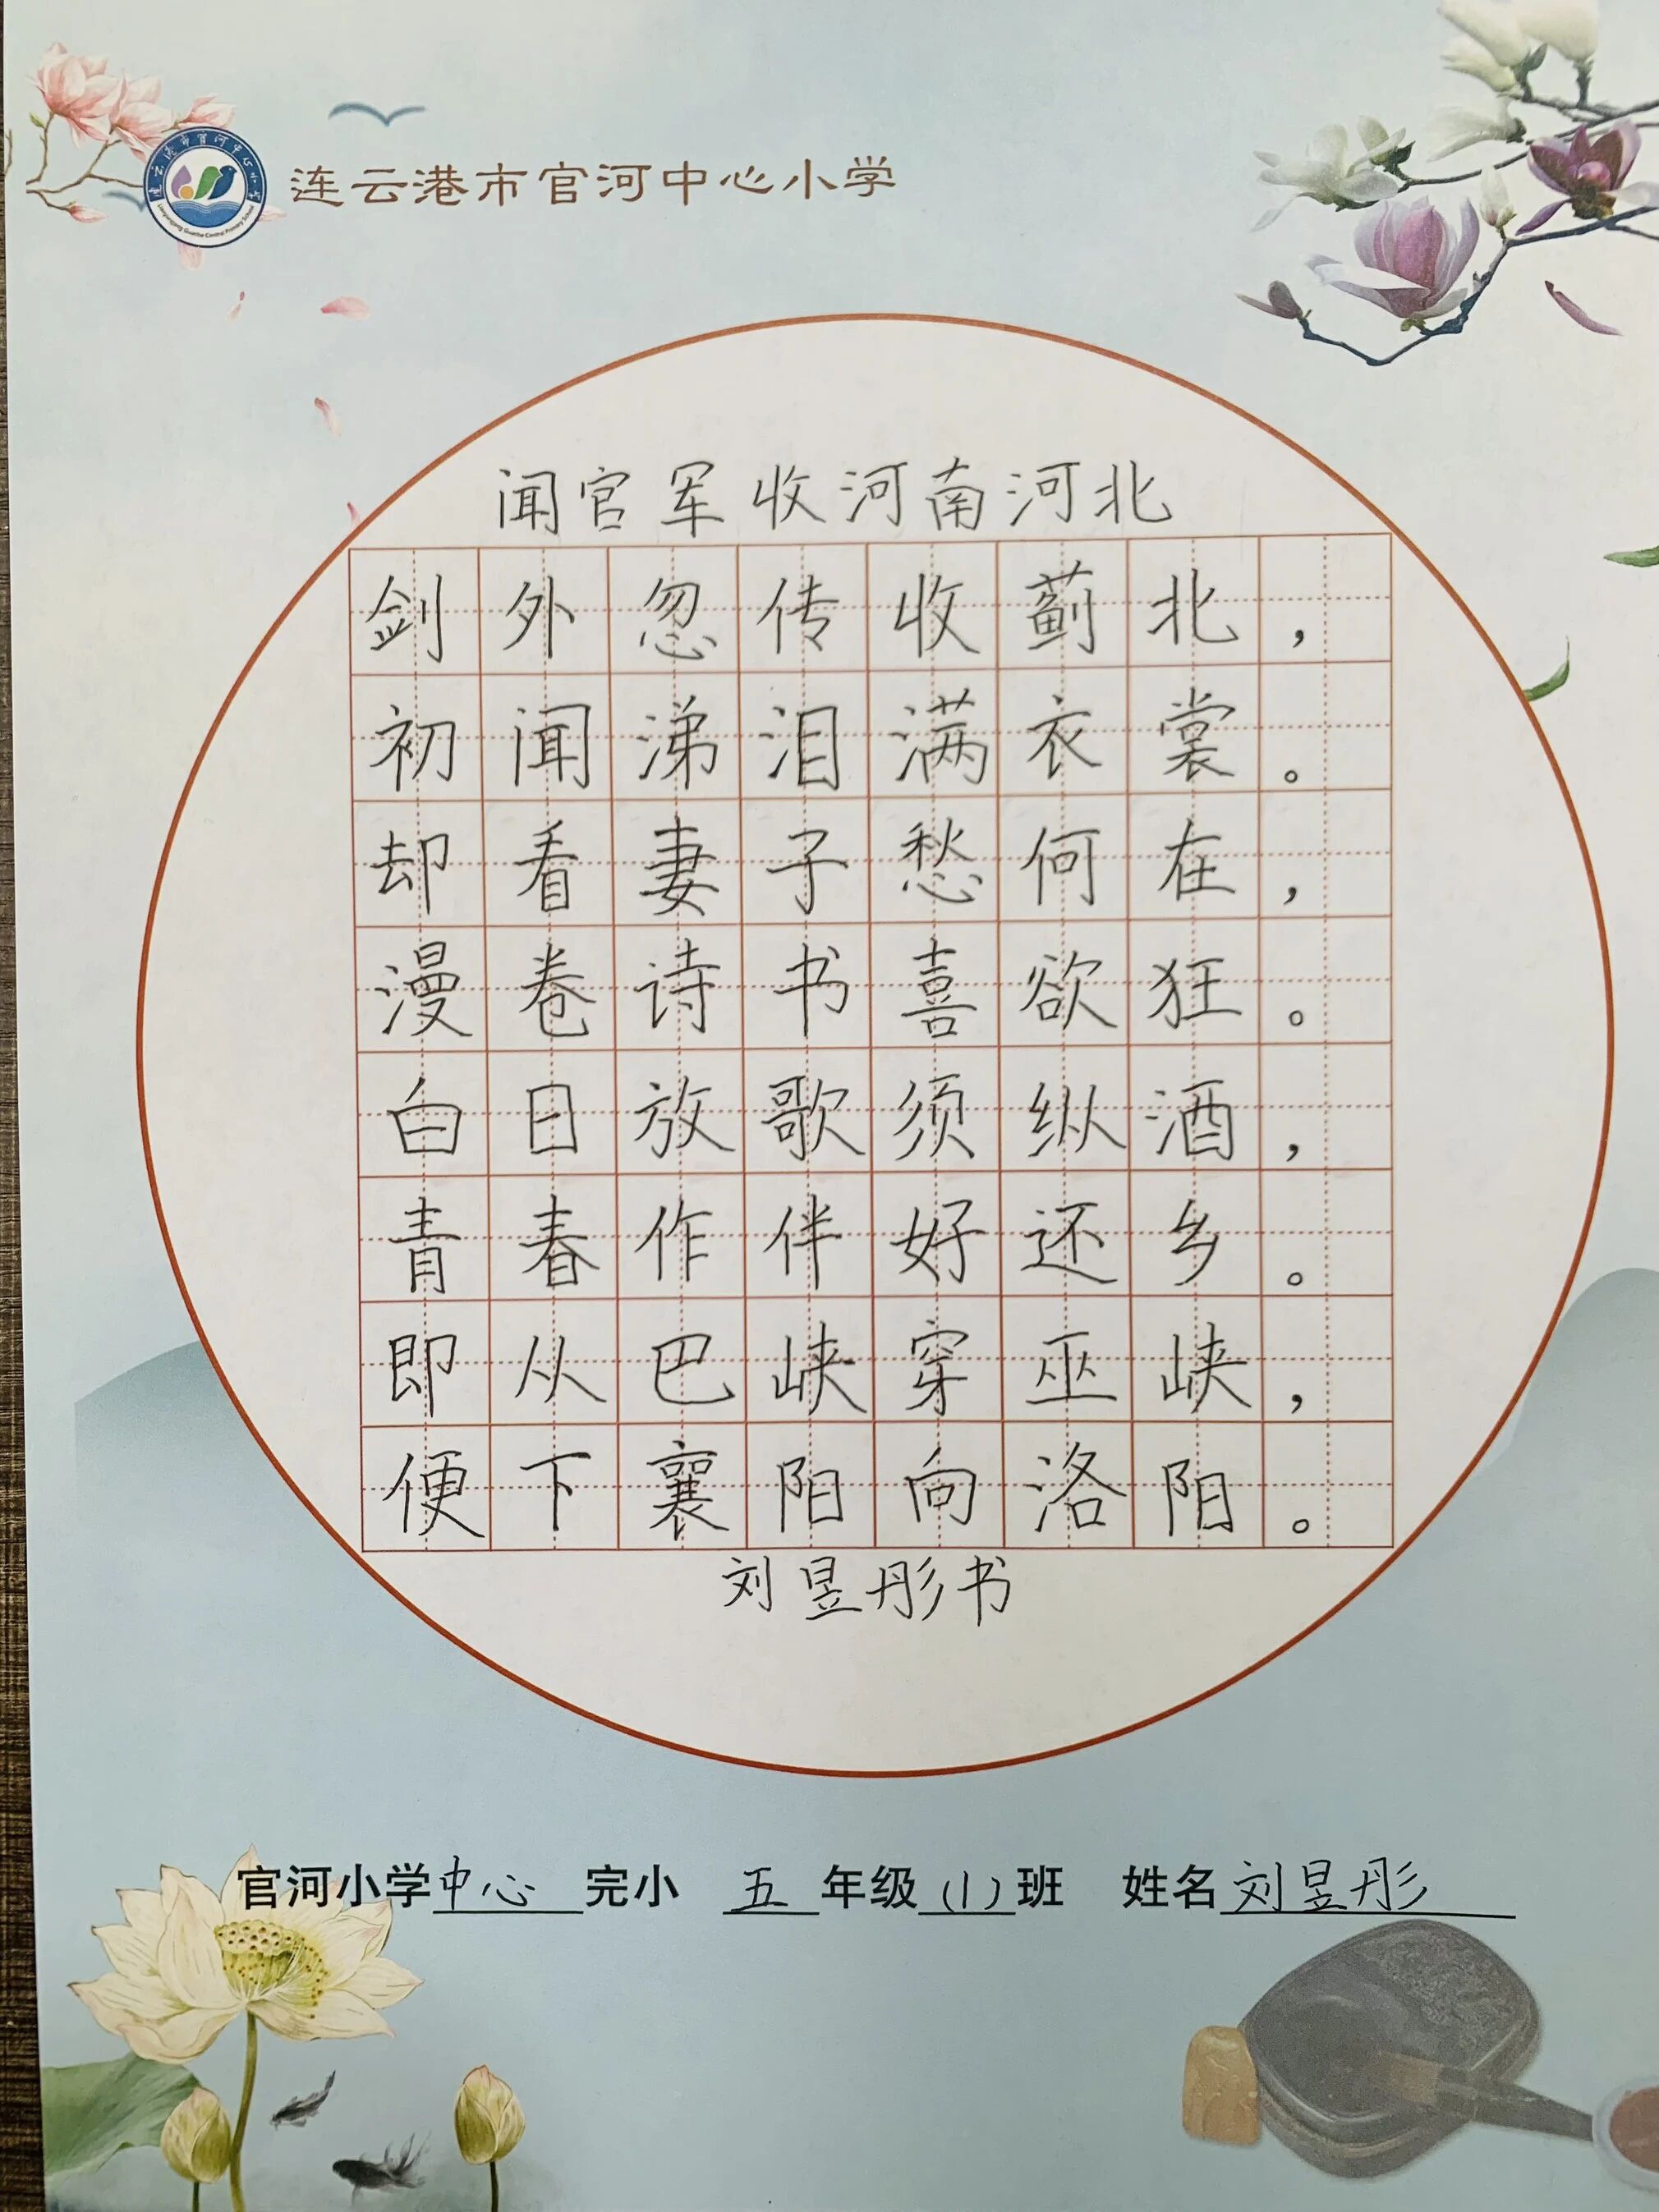 连云港市官河中心小学
闻官军收河南河北
剑外忽传收蓟北，
初闻涕泪满衣裳。
却看妻子愁何在，
漫卷诗书喜欲狂。
白日放歌须纵酒，
青春作伴好还乡。
即从巴峡穿巫峡，
便下襄阳向洛阳。
刘昱彤书
官河小学中心完小 五年级(1)班 姓名刘昱彤